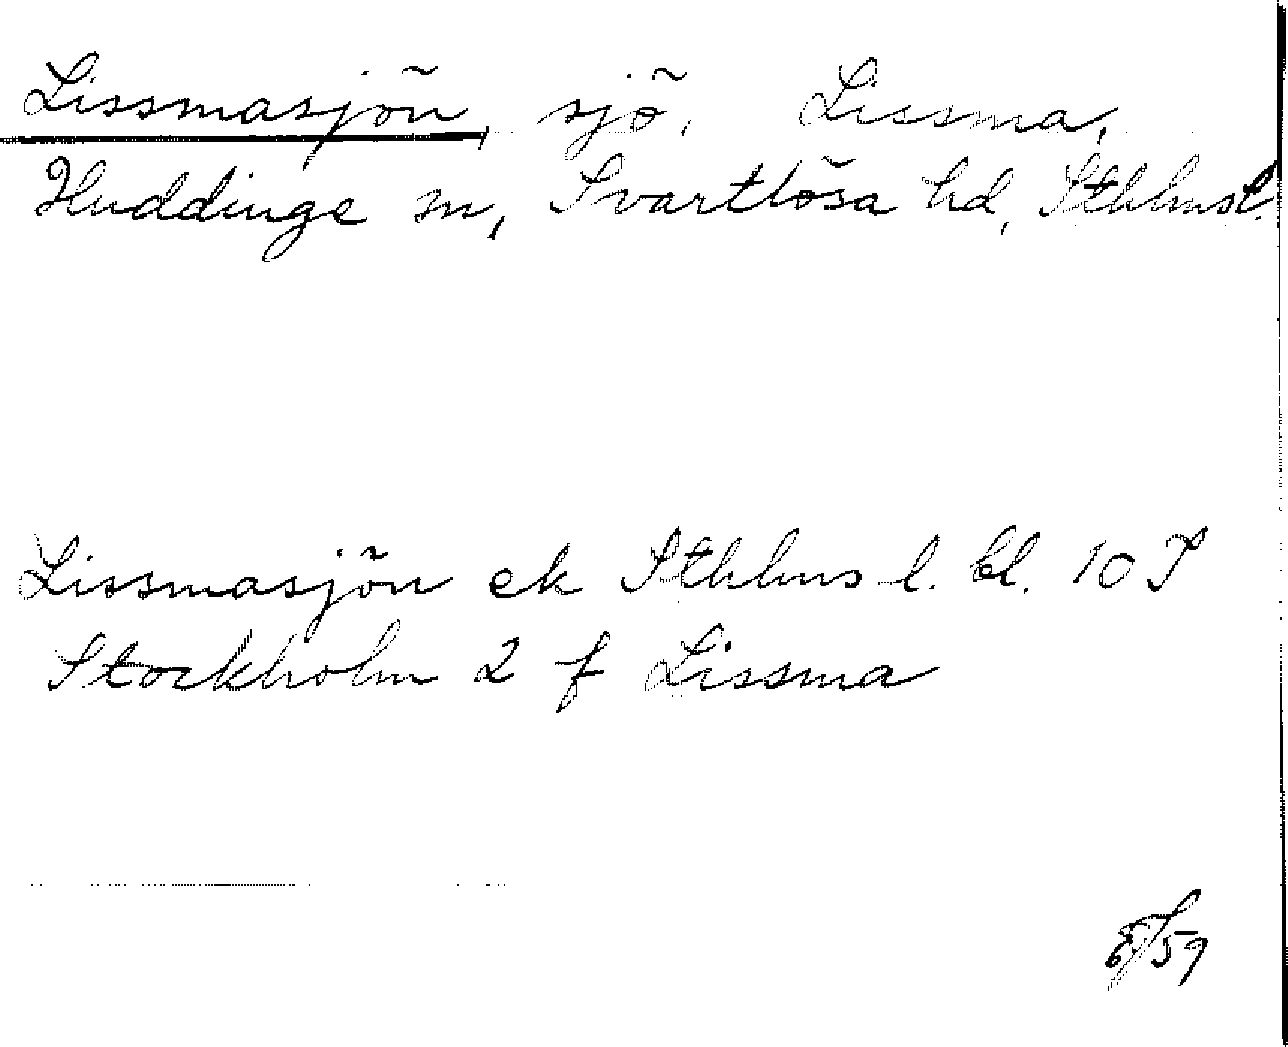 Lissmasjön, sjö, Lissma,
Huddinge sn, Svartlösa hd, Sthlms l.
Lissmasjön ek Sthlms l. bl. 10 I
Stockholm 2 f Lissma
/59